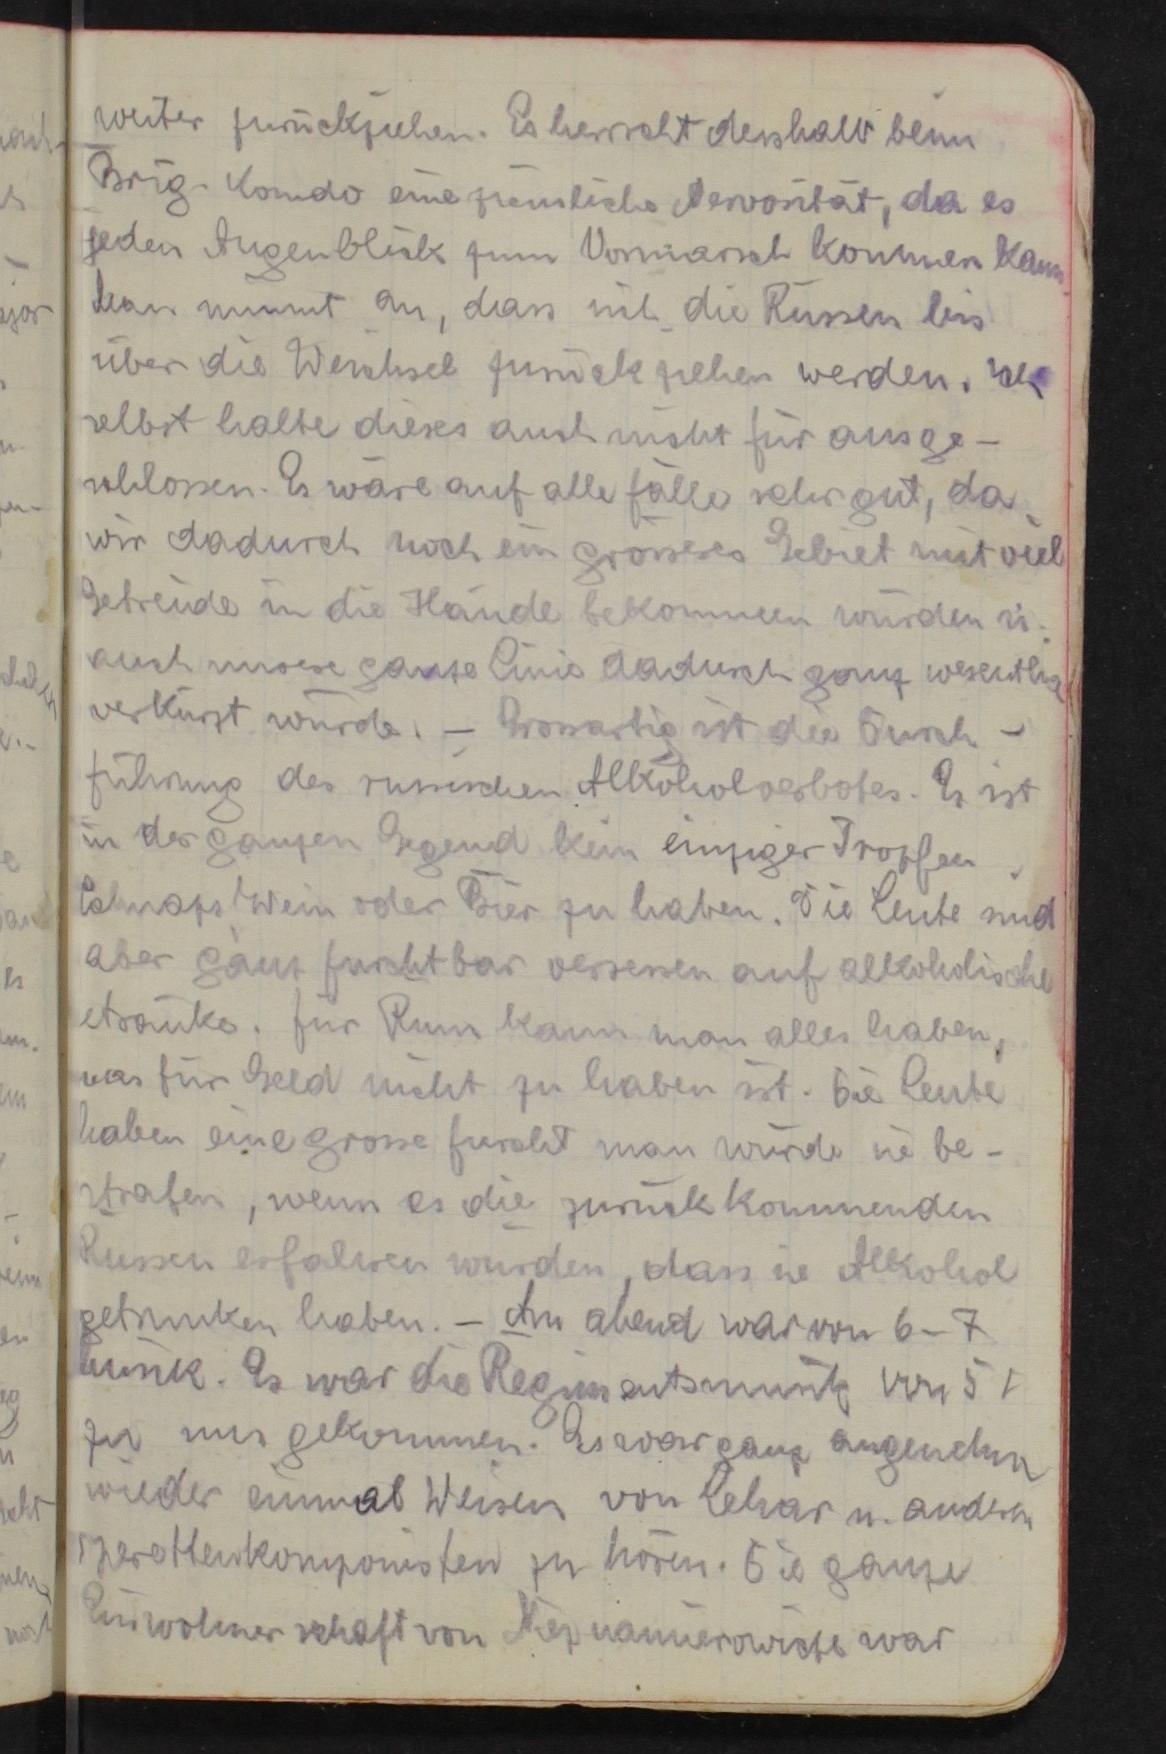 weiter zurückziehen. Es herrscht desshalb beim
Brig. Komdo eine ziemliche Nervosität, da es
jeden Augenblick zum Vormarsch kommen kann.
Man nimmt an, dass sich die Russen bis
über die Weichsel zurückziehen werden. Ich
selbst halte dieses auch nicht für ausge-
schlossen. Es wäre auf alle fälle sehr gut, da
wir dadurch noch ein grösseres Gebiet mit viel
Getreide in die Hände bekommen würden u.
auch unsere ganze Linie dadurch ganz wesentlich
verkürzt würde. - Grossartig ist die Durch-
führung des russischen Alkoholverbotes. Es ist
in der ganzen Gegend kein einziger Tropfen
Schnaps Wein oder Bier zu haben. Die Leute sind
aber ganz furchtbar versessen auf alkoholische
etränke. für Rum kann man alles haben,
was für Geld nicht zu haben ist. Die Leute
haben eine grosse furcht man würde sie be-
strafen, wenn es die zurückkommenden
Russen erfahren würden, dass sie Alkohol
getrunken haben. - Am abend war von 6-7
Musik. Es war die Regimentsmusik von 51
zu uns gekommen. Es war ganz angenehm
wieder einmal Weisen von Lehar u. anderen
Operettenkomponisten zu hören. Die ganze
Einwohnerschaft von war